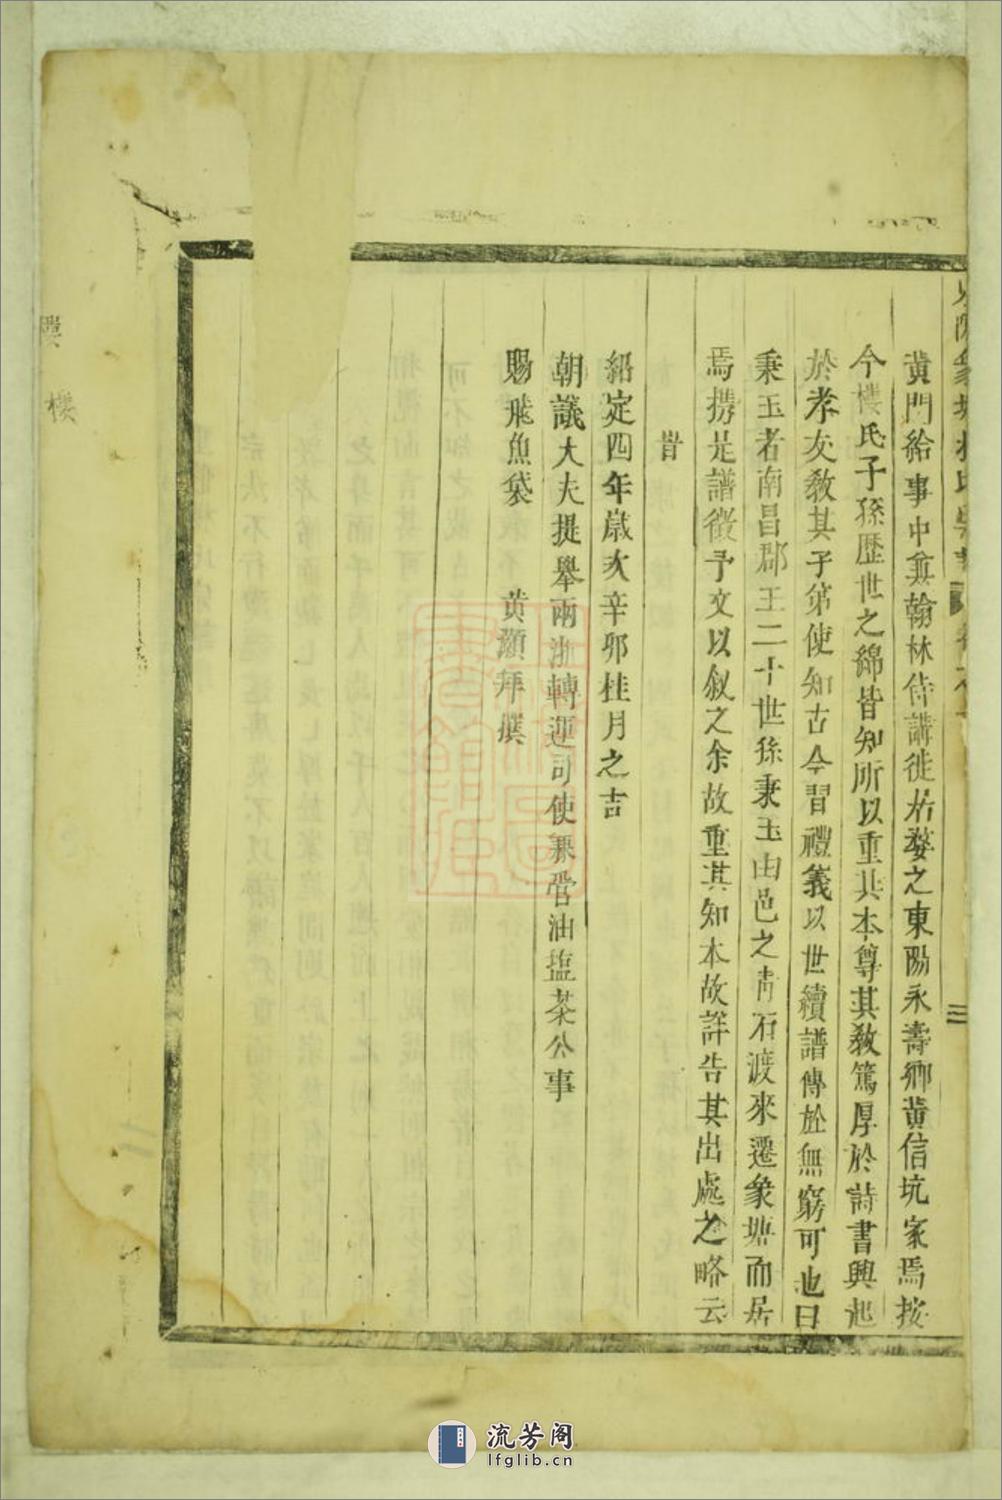 黃門給事中兼翰林侍講徙居婺之東陽永壽鄉黃信坑家焉按
今樓氏子孫歷世之綿皆知所以重其本尊其教篤厚於詩書興起
於孝友教其子弟使知古今習禮義以世續譜傳於無窮可也曰
秉玉者南昌郡王二十世孫秉玉由邑之靑石渡來遷象塘而居
焉携是譜徵予文以叙之余故重其知本故詳告其出處之略云
旹
紹定四年歲次辛卯桂月之吉
朝議大夫提舉兩浙轉運司使兼管油塩茶公事
賜飛魚袋 黄灝拜撰
樓
流芳阁
lfglib.cn